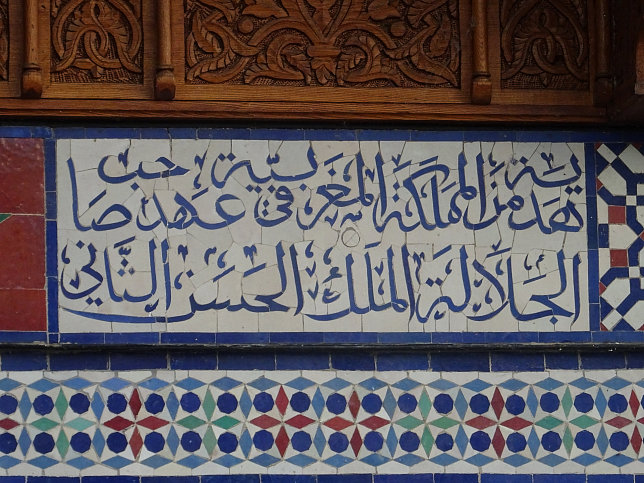 هدية من المملكة المغربية في عهد صاحب
الجلالة الملك الحسن الثاني